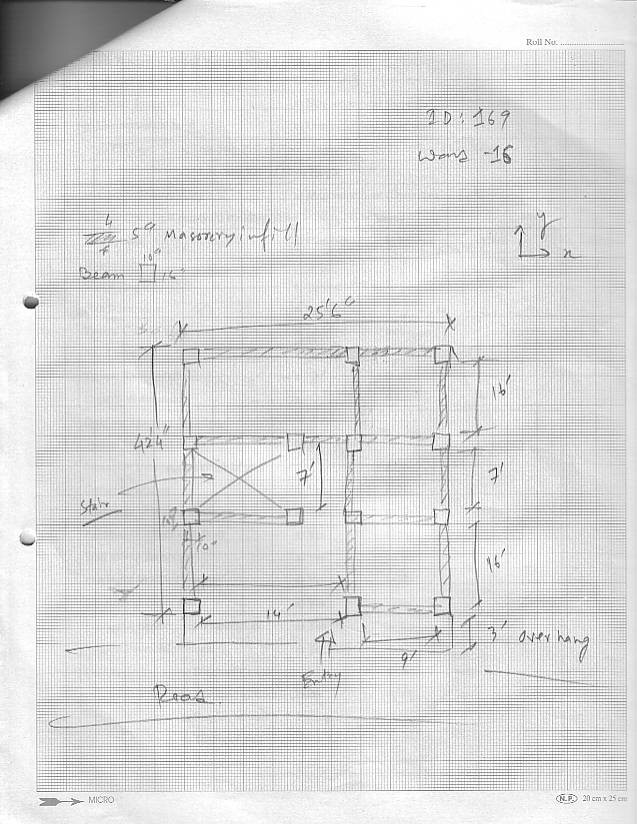 Roll No.
ID: 169
Ward -16
5" Masonry infill
10"
Beam 16"
y
x
25'6"
16'
42'4"
7'
7'
Stair
10"
16'
14'
3' overhang
9'
Entry
Road.
MICRO
N.P. 20 cm x 25 cm